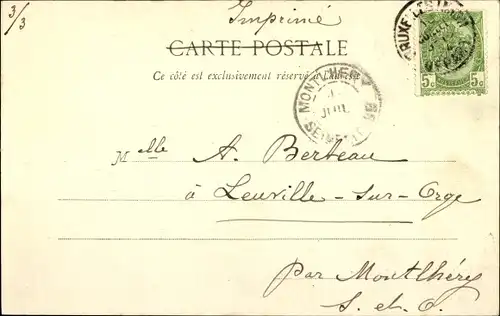 3/3
Imprimé
CARTE POSTALE
Ce côté est exclusivement réservé à l'adresse
BRUXELLES
5c 5c
MONTLHERY
JUIL
SEINE
Melle A. Berteau
à Leuville-sur-Orge
par Montlhéry
S. et O.